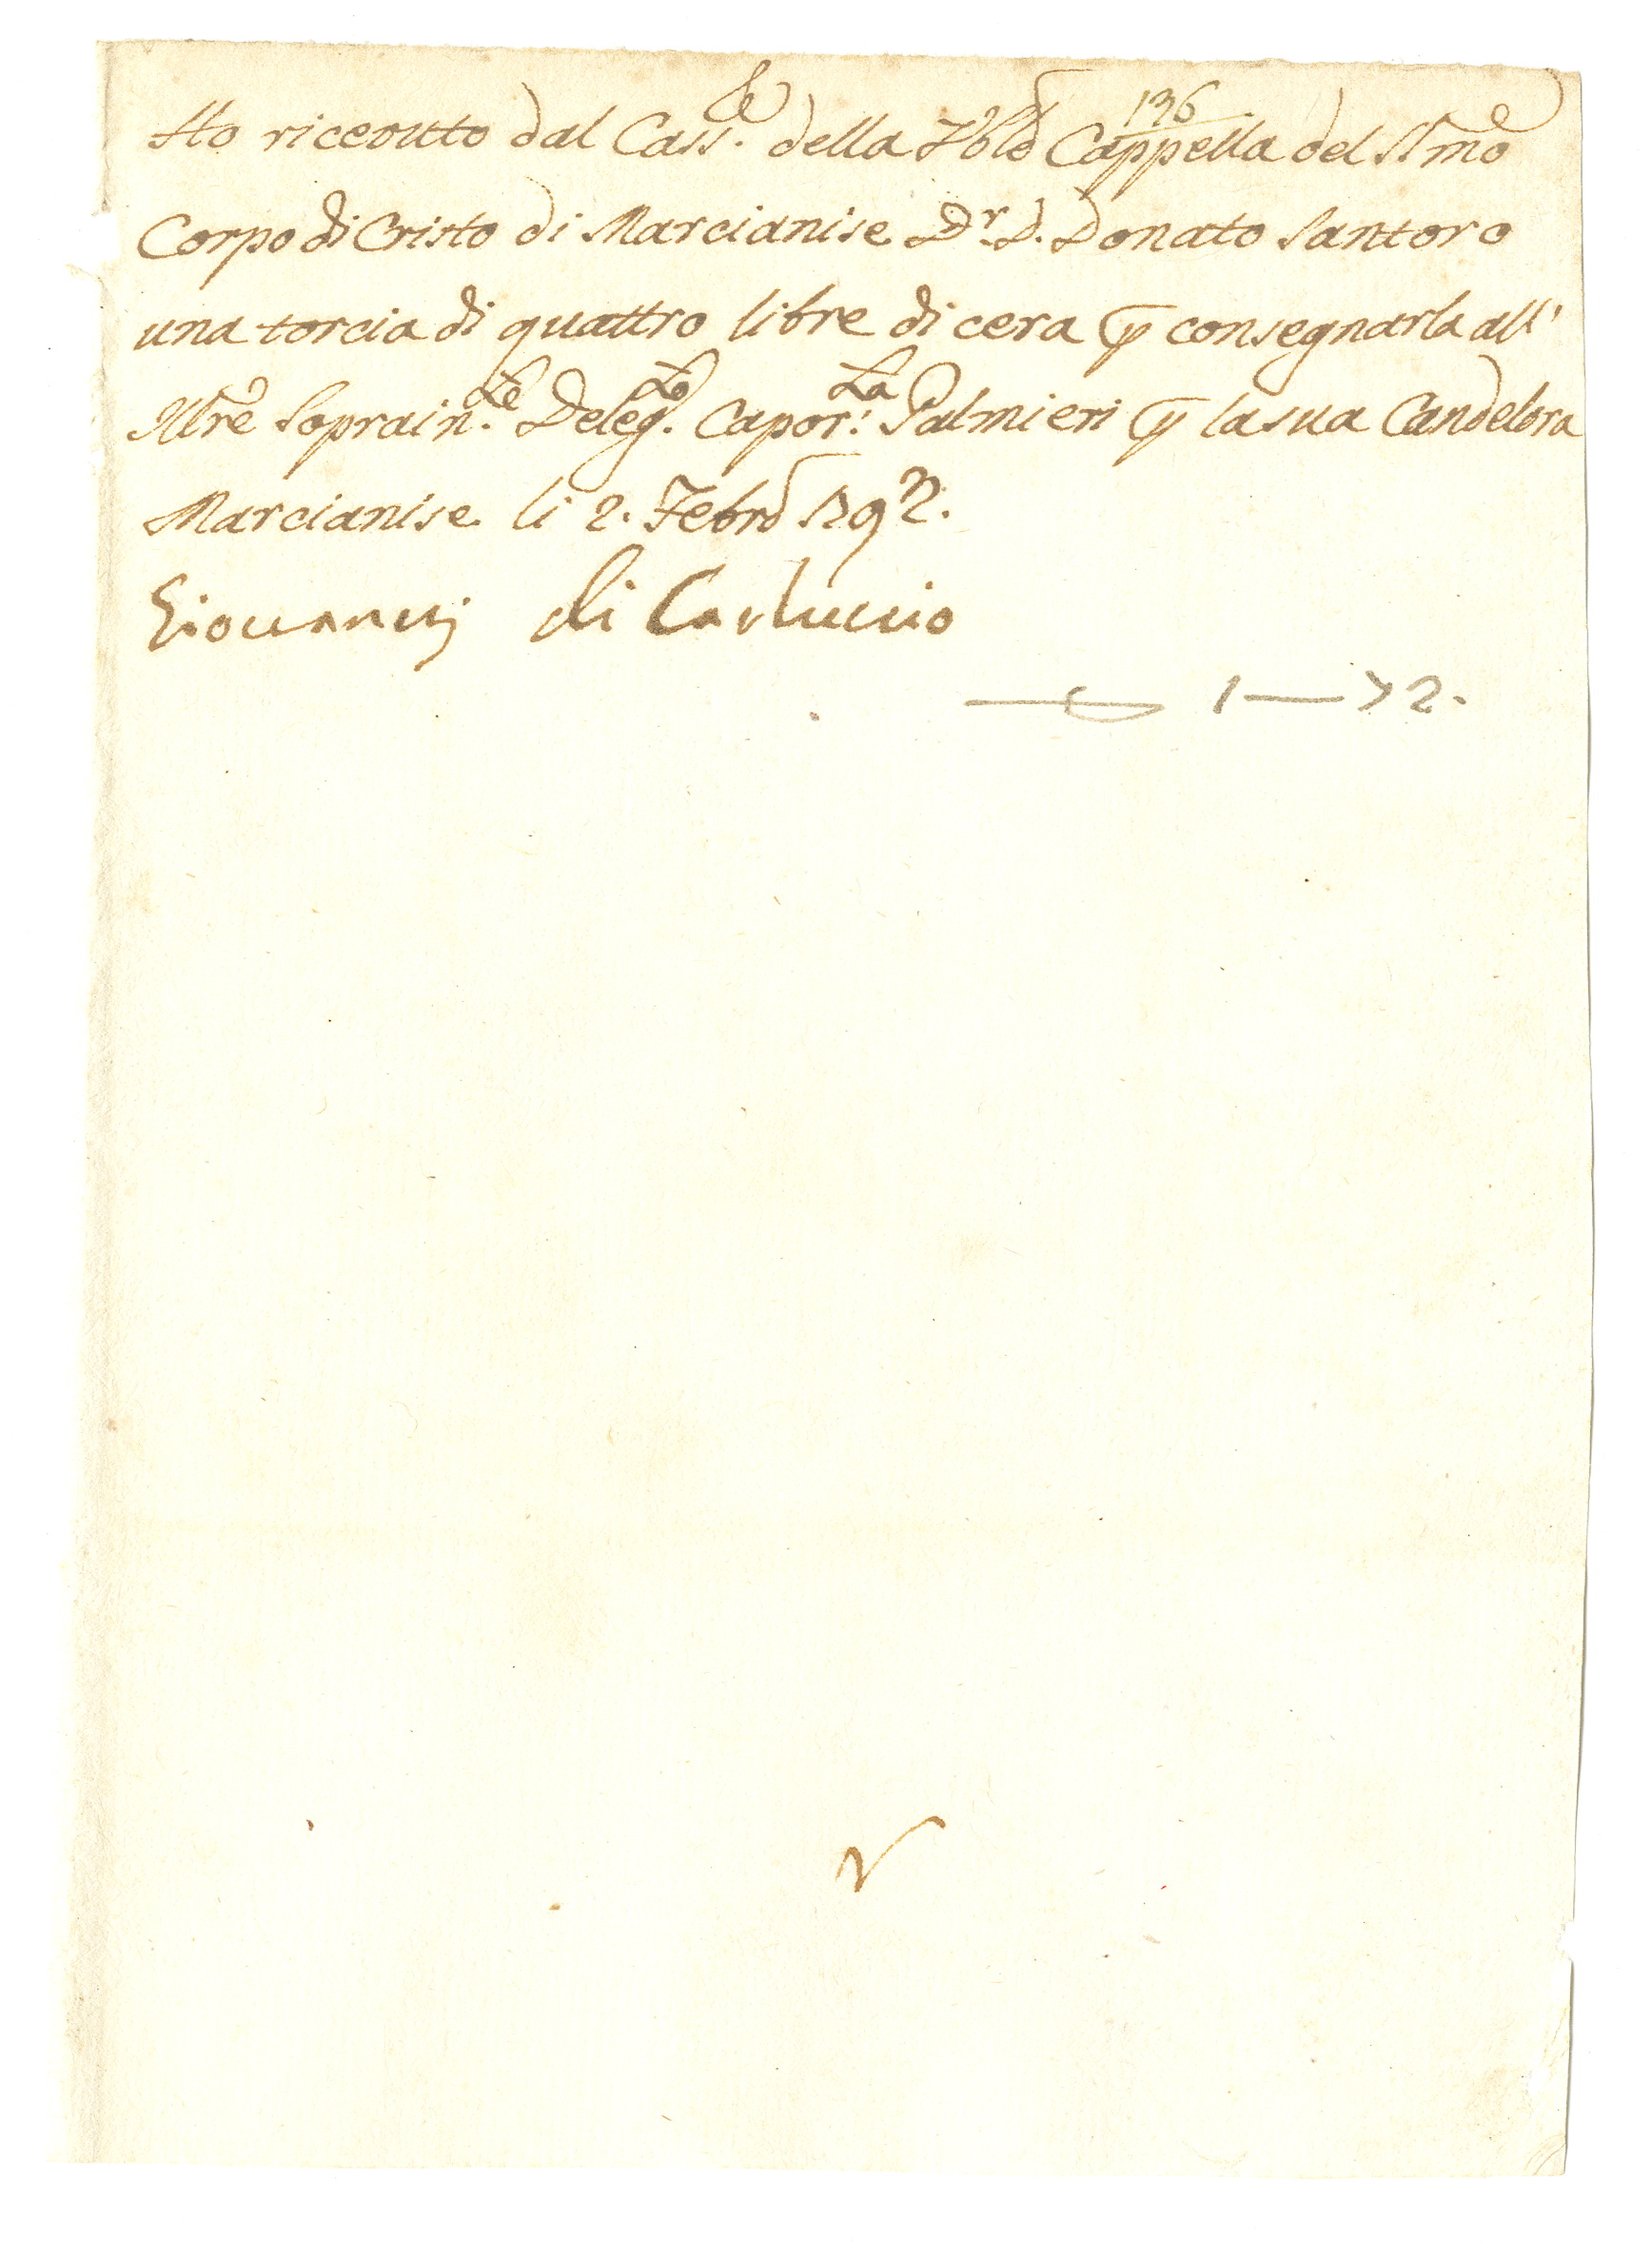 136
Ho riceputo dal Cass.re della Vble Cappella del SSmo
Corpo di Cristo di Marcianise Dr. D. Donato Santoro
una torcia di quattro libre di cera p consegnarla all'
Illre Soprain.te Deleg.to Capor.ta Palmieri p la sua Candelora
Marcianise li 2. Febro 1792.
Giovanni di Carluccio
1—72.